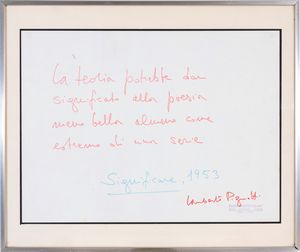 La teoria potrebbe dar
significato alla poesia
meno bella almeno come
estremo di una serie
Significare, 1953
Lamberto Pignotti